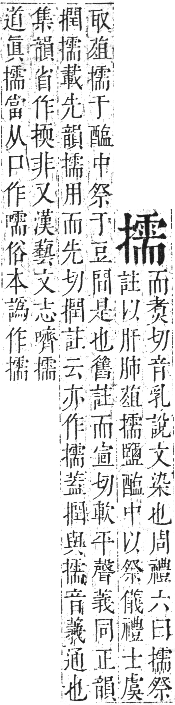 擩
而煑切音乳說文染也周禮六曰擩祭
註以肝肺葅擩鹽醢中以祭儀禮士虞
取葅擩于醢中祭于豆間是也舊註而宣切軟平聲義同正韻
撋擩載先韻擩用而先切撋註云亦作擩蓋撋與擩音義通也
集韻省作㨎非又漢藝文志嚌擩
道眞擩當从口作嚅俗本譌作擩